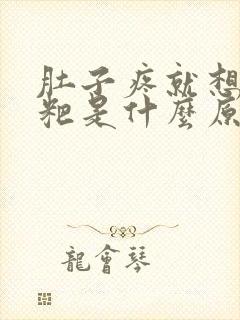 肚子疼就想
粑是什麼原
龍會琴